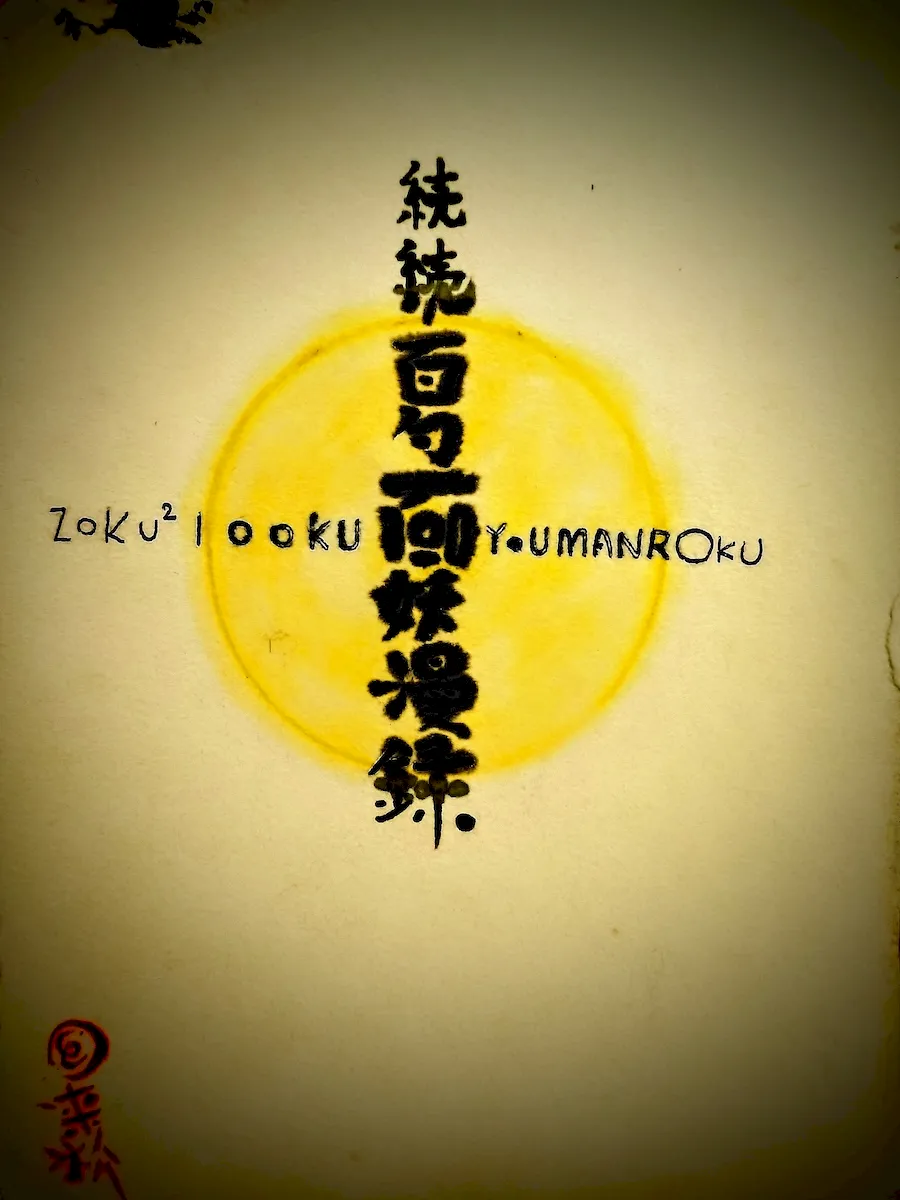 続続百勺妖漫録.
ZoKU² 100KU YoUMANROKU